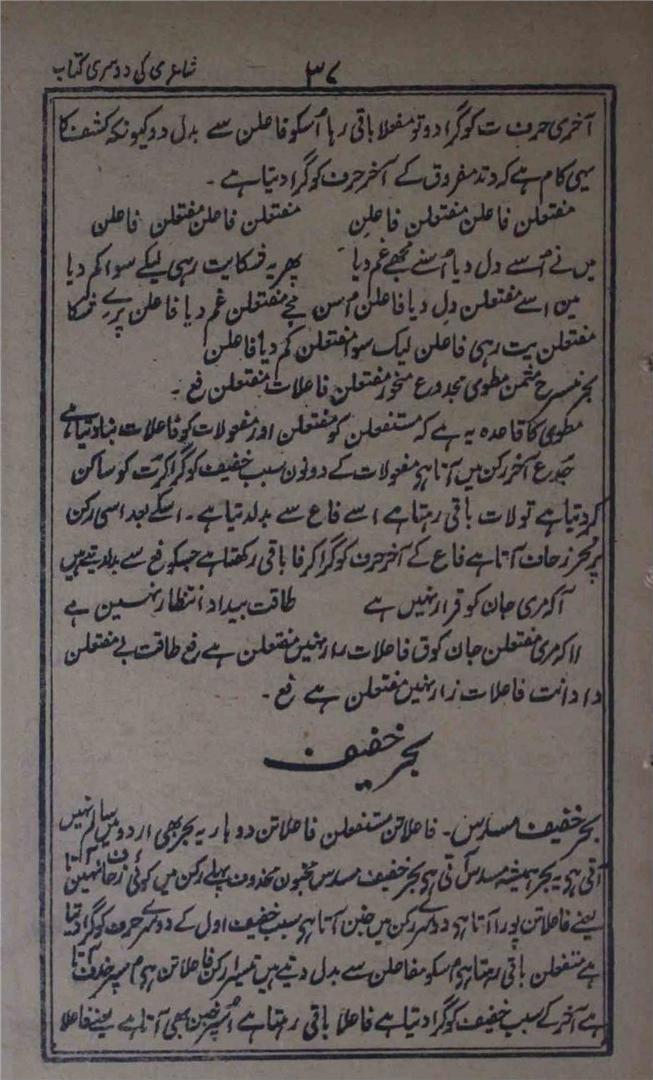 شاعری کی دوسری کتاب
۳۷
آخری حرف ت کو گرا دو تو مفعلا باقی رہا اُسکو فاعلن سے بدل دو کیونکہ کشف کا
یہی کام ہے کہ وتد مفروق کے آخر حرف کو گرا دیتا ہے ۔
مفتعلن فاعلن مفتعلن فاعلن مفتعلن فاعلن مفتعلن فاعلن
میں نے اُسے دل دیا اُسنے مجھے غم دیا پھر یہ شکایت رہی لیکے سوا کم دیا
مین اسے مفتعلن دل دیا فاعلن اسن مجے مفتعلن غم دیا فاعلن پرے شکا
مفتعلن یت رہی فاعلن لیک سوا مفتعلن کم دیا فاعلن
بحر منسرح مثمن مطوی مجدوع منحور مفتعلن فاعلات مفتعلن فع ۔
مطوی کا قاعدہ یہ ہے کہ مستفعلن کو مفتعلن اور مفعولات کو فاعلات بنا دیتا ہے
جدع آخر رکن میں آتا ہو مفعولات کے دونون سبب خفیف کو گرا کر ت کو ساکن
کر دیتا ہے تو لات باقی رہتا ہے اسے فاع سے بدلدیتا ہے ۔ اسکے بعد اسی رکن
پر نحر زحاف آتا ہے فاع کے آخر حرف کو گرا کر فا باقی رکھتا ہے جسکو فع سے بدلدیتے ہیں
آ کہ مری جان کو قرار نہیں ہے طاقت بیداد انتظار نہیں ہے
ااکہ مری مفتعلن جان کو ق فاعلات رار نہیں مفتعلن ہے فع طاقت بے مفتعلن
دادانت فاعلات زار نہیں مفتعلن ہے فع ۔
بحر خفیف
بحر خفیف مسدس ۔ فاعلاتن مستفعلن فاعلاتن دو بار یہ بحر بھی اردو میں سالم نہیں
آتی ہو یہ بحر ہمیشہ مسدس آتی ہو بحر خفیف مسدس مخبون محذوف پہلے رکن میں کوئی زحاف نہیں آتا
یعنے فاعلاتن پورا آتا ہو دوسرے رکن میں خبن آتا ہو سبب خفیف اول کے دوسرے حرف کو گرا دیتا
ہے متفعلن باقی رہتا ہو اسکو مفاعلن سے بدل دیتے ہیں تیسرا رکن فاعلاتن ہو اسپر حذف آتا
ہے آخر کے سبب خفیف کو گرا دیتا ہے فاعلا باقی رہتا ہے اُسپر خبن بھی آتا ہے یعنے فاعلا